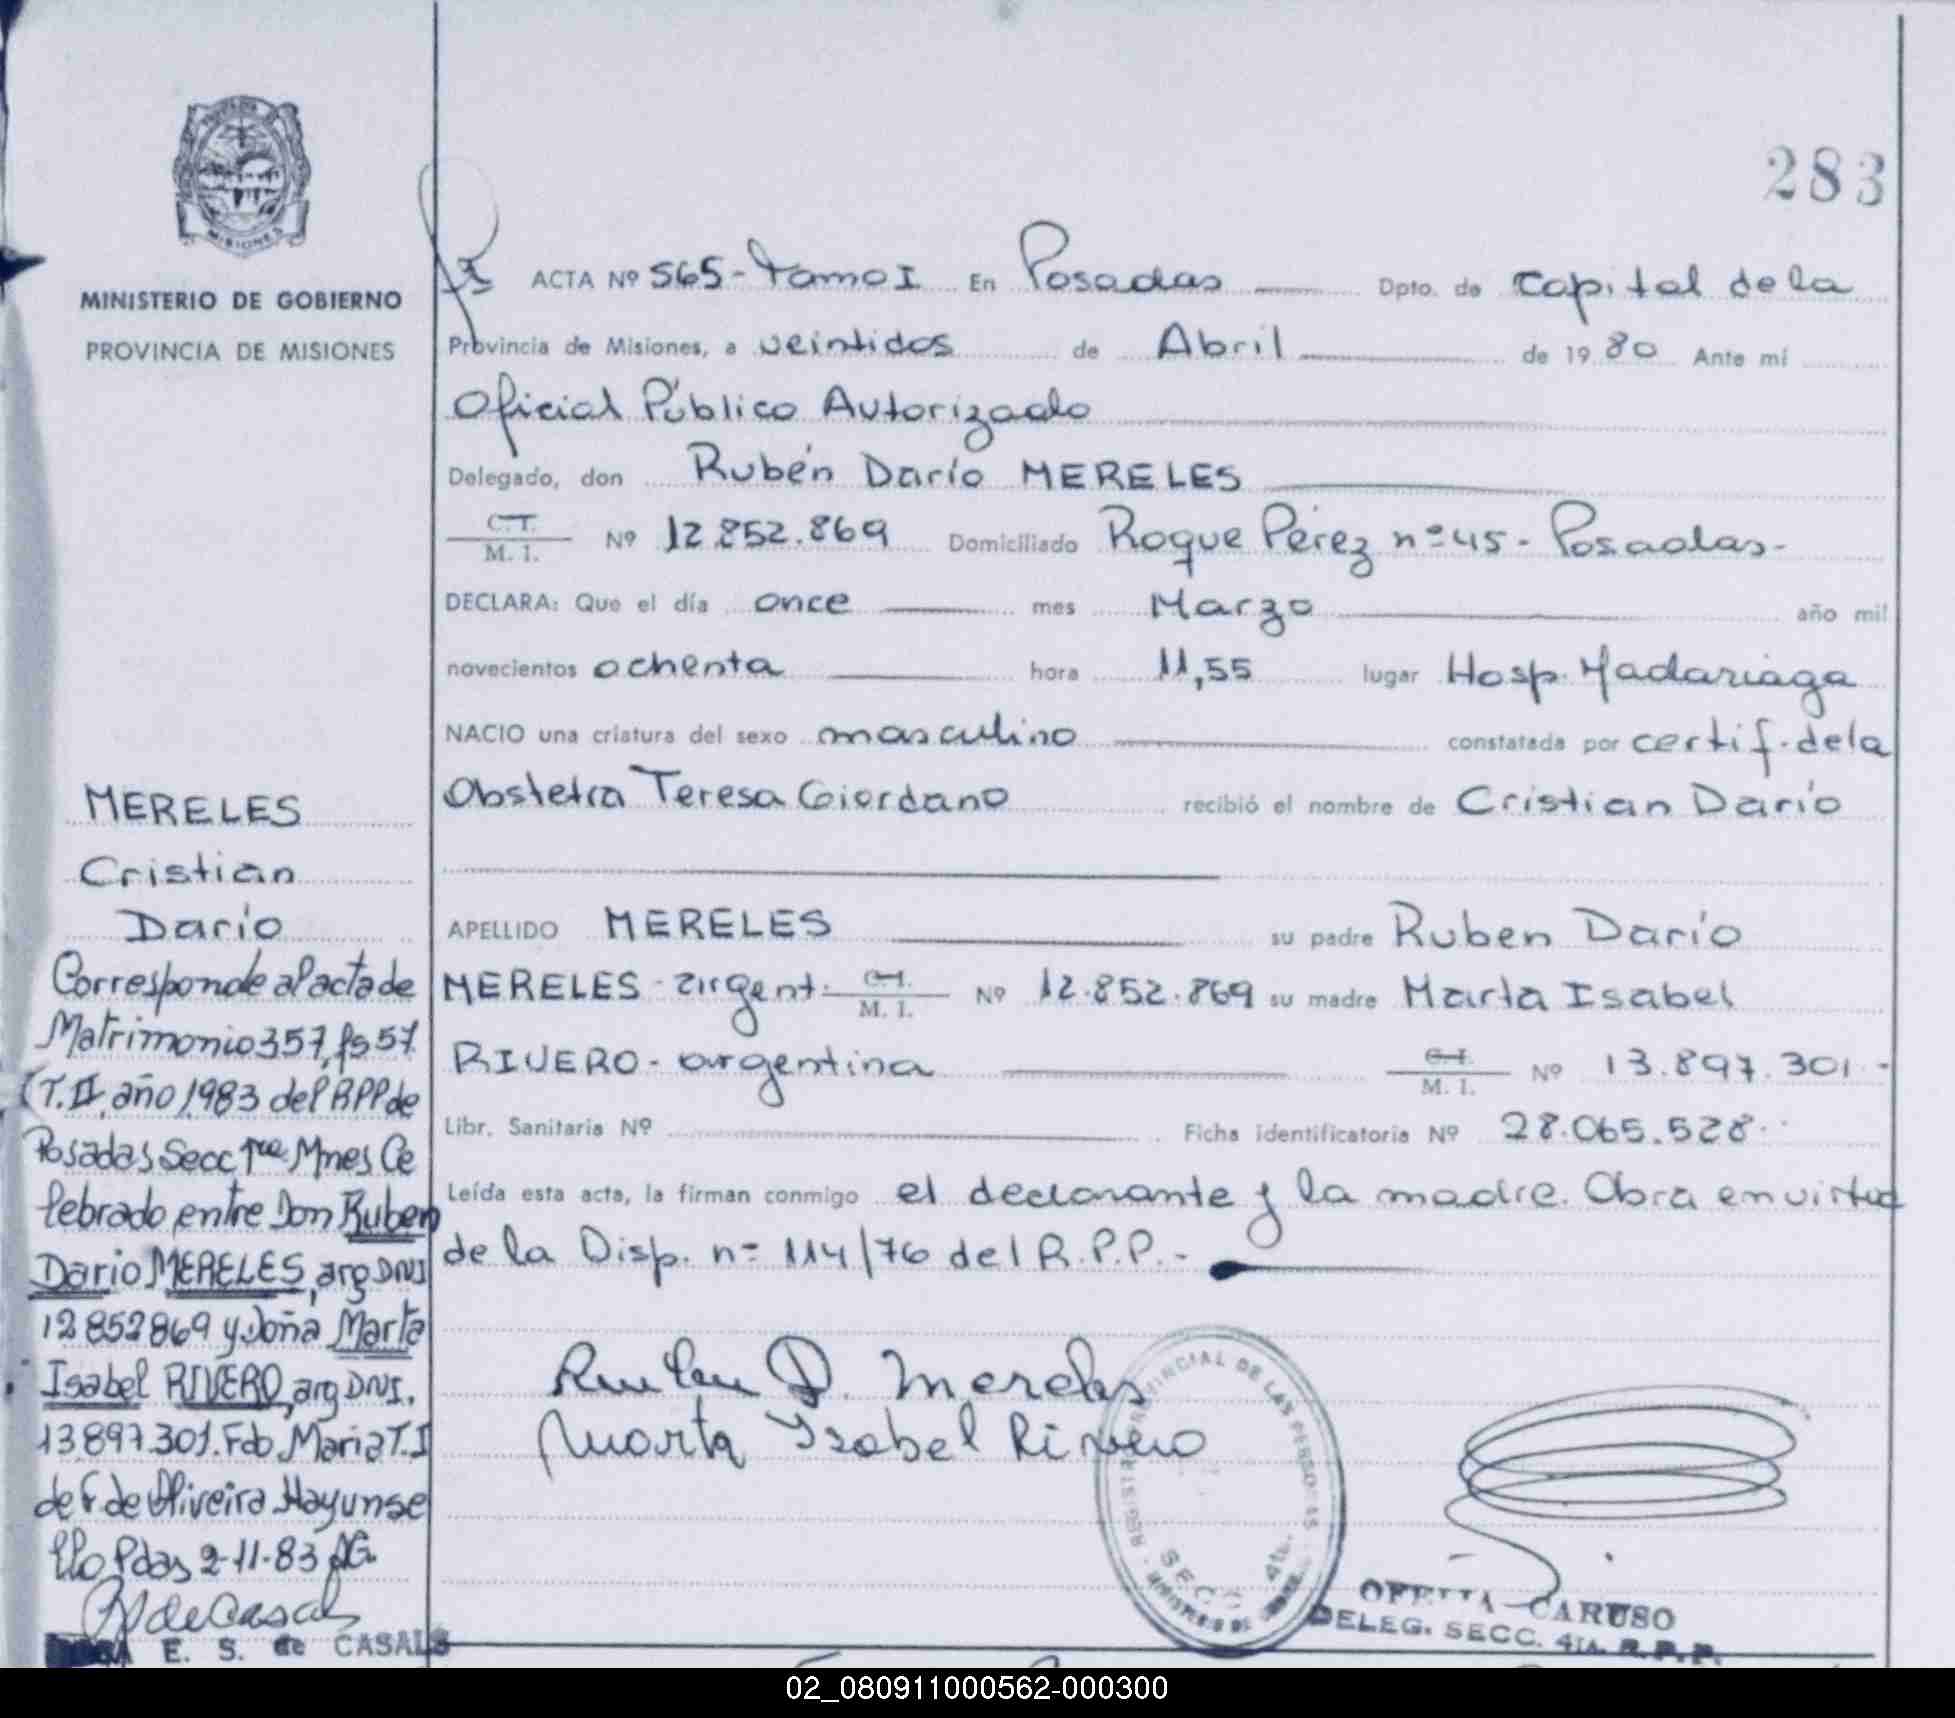 MISIONES
MINISTERIO DE GOBIERNO
PROVINCIA DE MISIONES
MERELES
Cristian
Darío
Corresponde al acta de
Matrimonio 357, fs 57
T. II, año 1983 del RPP de
Posadas Secc 1ra Mnes Ce
lebrado entre Don Ruben
Dario MERELES, arg DNI
12852869 y Doña Marta
Isabel RIVERO, arg DNI.
13897301. Fdo. Maria T. I
de F. de Oliveira Hayunse
llo Pdas 2-11-83 AG.
E. S. de CASALS
283
ACTA Nº 565 - Tomo I En Posadas Dpto. de Capital de la
Provincia de Misiones, a veintidos de Abril de 19 80 Ante mí
Oficial Público Autorizado
Delegado, don Rubén Darío MERELES
C.I. M. I. Nº 12.852.869 Domiciliado Roque Pérez nº 45 - Posadas-
DECLARA: Que el día once mes Marzo año mil
novecientos ochenta hora 11,55 lugar Hosp. Madariaga
NACIO una criatura del sexo masculino constatada por certif. de la
Obstetra Teresa Giordano recibió el nombre de Cristian Darío
APELLIDO MERELES su padre Ruben Darío
MERELES - argent. C.I. M. I. Nº 12.852.869 su madre Marta Isabel
RIVERO - argentina C.I. M. I. Nº 13.897.301.-
Libr. Sanitaria Nº Ficha identificatoria Nº 28.065.528.
Leída esta acta, la firman conmigo el declarante y la madre. Obra en virtud
de la Disp. nº 114/76 del R.P.P.-
Ruben D. Mereles
Marta Isabel Rivero
REGISTRO PROVINCIAL DE LAS PERSONAS
SECC. 4ta.
CARUSO
DELEG. SECC. 4TA. R.P.P.
02_080911000562-000300